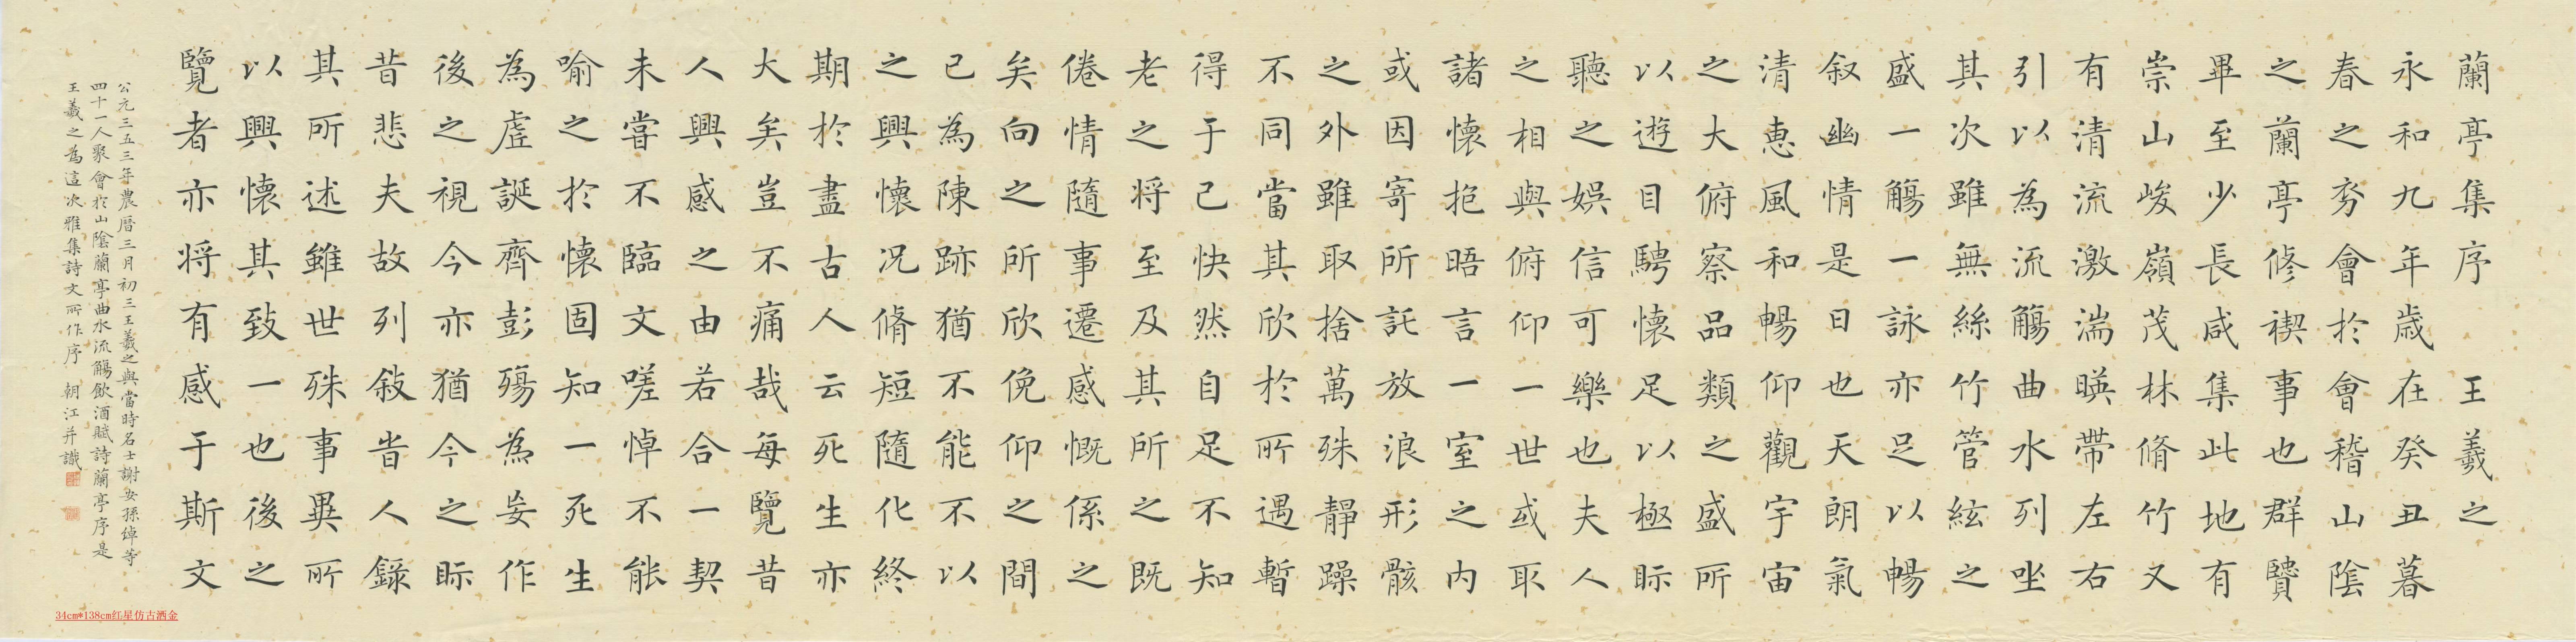 蘭亭集序 王羲之
永和九年歲在癸丑暮
春之初會於會稽山陰
之蘭亭修禊事也群賢
畢至少長咸集此地有
崇山峻嶺茂林脩竹又
有清流激湍暎帶左右
引以為流觴曲水列坐
其次雖無絲竹管絃之
盛一觴一詠亦足以暢
叙幽情是日也天朗氣
清惠風和暢仰觀宇宙
之大俯察品類之盛所
以遊目騁懷足以極眎
聽之娛信可樂也夫人
之相與俯仰一世或取
諸懷抱晤言一室之内
或因寄所託放浪形骸
之外雖取捨萬殊靜躁
不同當其欣於所遇暫
得于己快然自足不知
老之将至及其所之既
倦情隨事遷感慨係之
矣向之所欣俛仰之間
已為陳跡猶不能不以
之興懷况脩短隨化終
期於盡古人云死生亦
大矣豈不痛哉每覽昔
人興感之由若合一契
未嘗不臨文嗟悼不能
喻之於懷固知一死生
為虛誕齊彭殤為妄作
後之視今亦猶今之眎
昔悲夫故列敘旹人錄
其所述雖世殊事異所
以興懷其致一也後之
覽者亦将有感于斯文
公元三五三年農曆三月初三王羲之與當時名士謝安孫倬等
四十一人聚會於山陰蘭亭曲水流觴飲酒賦詩蘭亭序是
王羲之為這次雅集詩文所作序 朝江并識
34cm*138cm红星仿古洒金